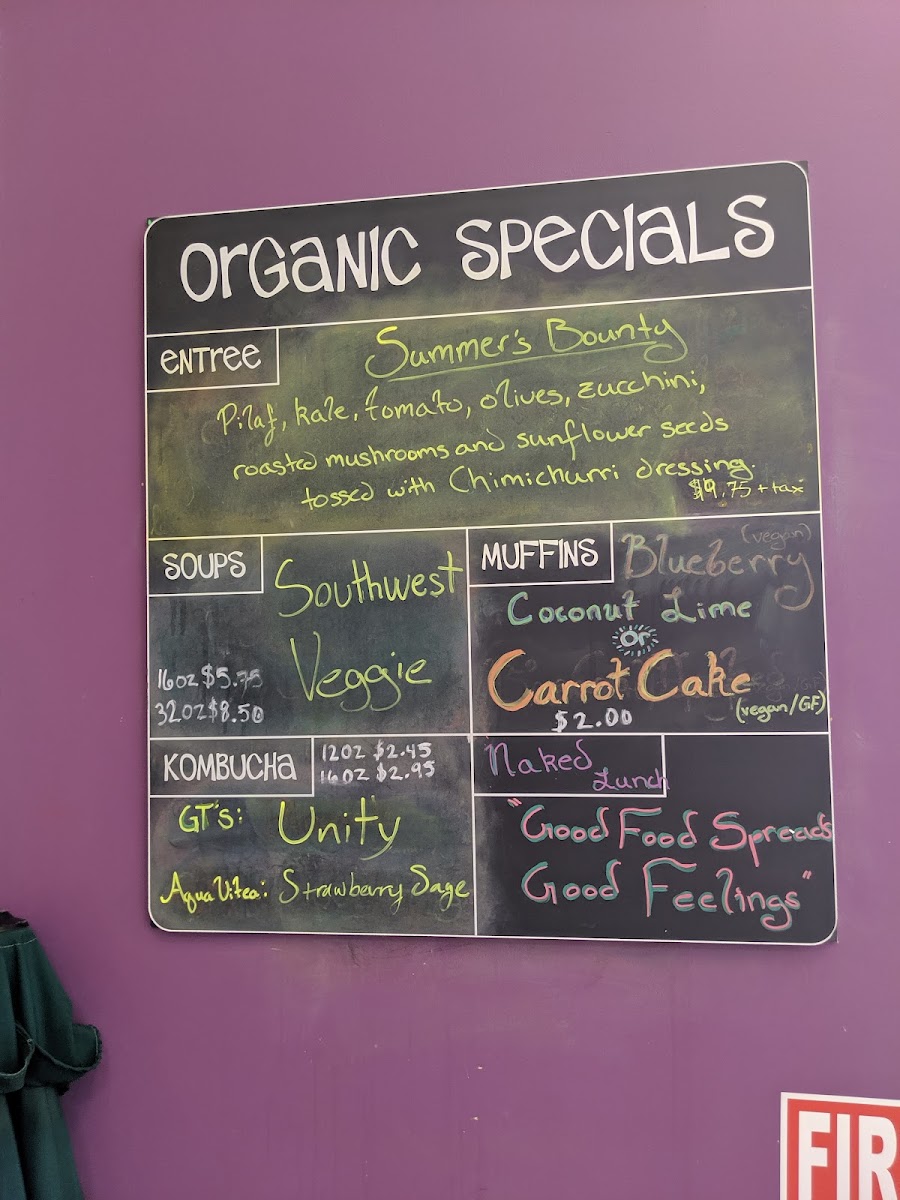 ORGANIC SPECIALS
ENTREE
Summer's Bounty
Pilaf, kale, tomato, olives, zucchini,
roasted mushrooms and sunflower seeds
tossed with Chimichurri dressing.
$9.75 + tax
SOUPS
Southwest
Veggie
16oz $5.75
32oz $8.50
MUFFINS
(vegan)
Blueberry
Coconut Lime
or
Carrot Cake
(vegan/GF)
$2.00
KOMBUCHA
12oz $2.45
16oz $2.95
GT's: Unity
Aqua Vitea: Strawberry Sage
Naked
Lunch
"Good Food Spreads
Good Feelings"
FIR